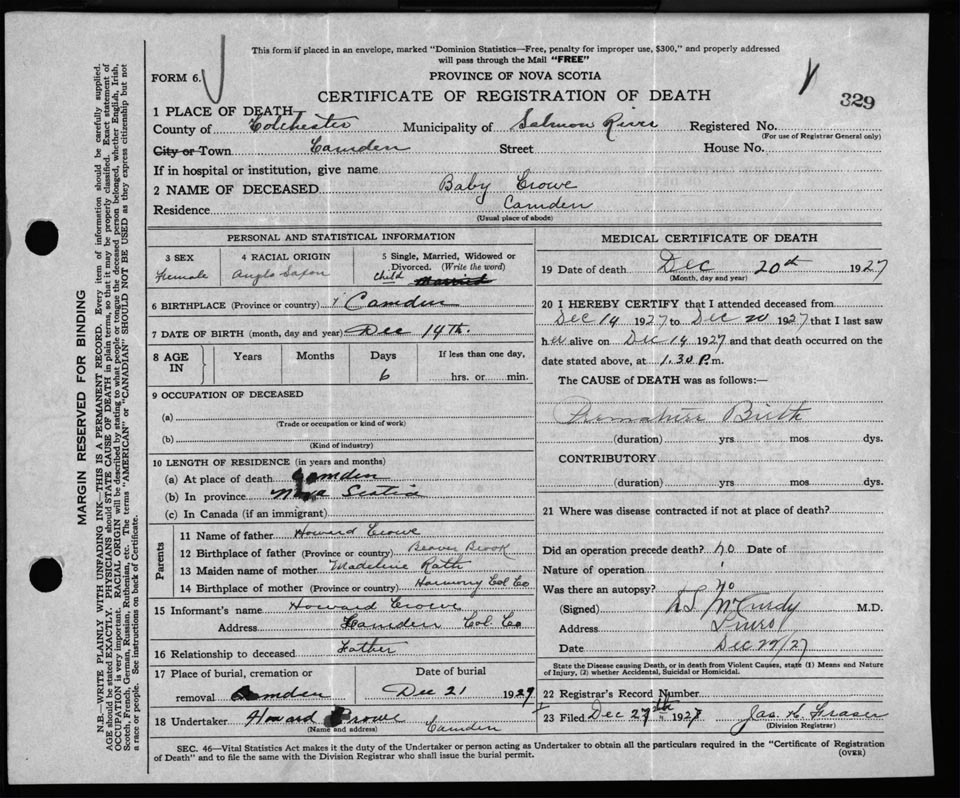 This form if placed in an envelope, marked "Dominion Statistics—Free, penalty for improper use, $300," and properly addressed
will pass through the Mail "FREE"
FORM 6.
PROVINCE OF NOVA SCOTIA
CERTIFICATE OF REGISTRATION OF DEATH
329
1 PLACE OF DEATH
County of Colchester Municipality of Salmon River Registered No.
(For use of Registrar General only)
City or Town Camden Street House No.
If in hospital or institution, give name
2 NAME OF DECEASED Baby Crowe
Residence Camden
(Usual place of abode)
PERSONAL AND STATISTICAL INFORMATION
3 SEX 4 RACIAL ORIGIN 5 Single, Married, Widowed or
Divorced. (Write the word)
Female Anglo Saxon Child
6 BIRTHPLACE (Province or country) Camden
7 DATE OF BIRTH (month, day and year) Dec 14th.
8 AGE IN Years Months Days If less than one day,
6 hrs. or min.
9 OCCUPATION OF DECEASED
(a)
(Trade or occupation or kind of work)
(b)
(Kind of industry)
10 LENGTH OF RESIDENCE (in years and months)
(a) At place of death Camden
(b) In province Nova Scotia
(c) In Canada (if an immigrant)
Parents
11 Name of father Howard Crowe
12 Birthplace of father (Province or country) Beaver Brook
13 Maiden name of mother Madeline
14 Birthplace of mother (Province or country) Harmony Col Co
15 Informant's name Howard Crowe
Address Camden Col. Co
16 Relationship to deceased Father
17 Place of burial, cremation or Date of burial
removal Camden Dec 21 1927
18 Undertaker Howard Crowe
(Name and address) Camden
MEDICAL CERTIFICATE OF DEATH
19 Date of death Dec 20th 1927
(Month, day and year)
20 I HEREBY CERTIFY that I attended deceased from
Dec 14 1927 to Dec 20 1927 that I last saw
her alive on Dec 14 1927 and that death occurred on the
date stated above, at 1.30 P.m.
The CAUSE of DEATH was as follows:—
Premature Birth
(duration) yrs. mos. dys.
CONTRIBUTORY
(duration) yrs. mos. dys.
21 Where was disease contracted if not at place of death?
Did an operation precede death? no Date of
Nature of operation
Was there an autopsy? no
(Signed) McCurdy M.D.
Address Truro
Date Dec 22/27
State the Disease causing Death, or in death from Violent Causes, state (1) Means and Nature
of Injury, (2) whether Accidental, Suicidal or Homicidal.
22 Registrar's Record Number
23 Filed Dec 27th 1927 Jas. K Fraser
(Division Registrar)
SEC. 46—Vital Statistics Act makes it the duty of the Undertaker or person acting as Undertaker to obtain all the particulars required in the "Certificate of Registration
of Death" and to file the same with the Division Registrar who shall issue the burial permit.
(OVER)
MARGIN RESERVED FOR BINDING
N.B.—WRITE PLAINLY WITH UNFADING INK—THIS IS A PERMANENT RECORD. Every item of information should be carefully supplied.
AGE should be stated EXACTLY. PHYSICIANS should STATE CAUSE OF DEATH in plain terms, so that it may be properly classified. Exact statement of
OCCUPATION is very important. RACIAL ORIGIN will be described by stating to what people or tongue the deceased person belonged, whether English, Irish,
Scotch, French, German, Russian, Ruthenian, etc. The terms "AMERICAN" or "CANADIAN" SHOULD NOT BE USED as they express citizenship but not
a race or people. See instructions on back of Certificate.